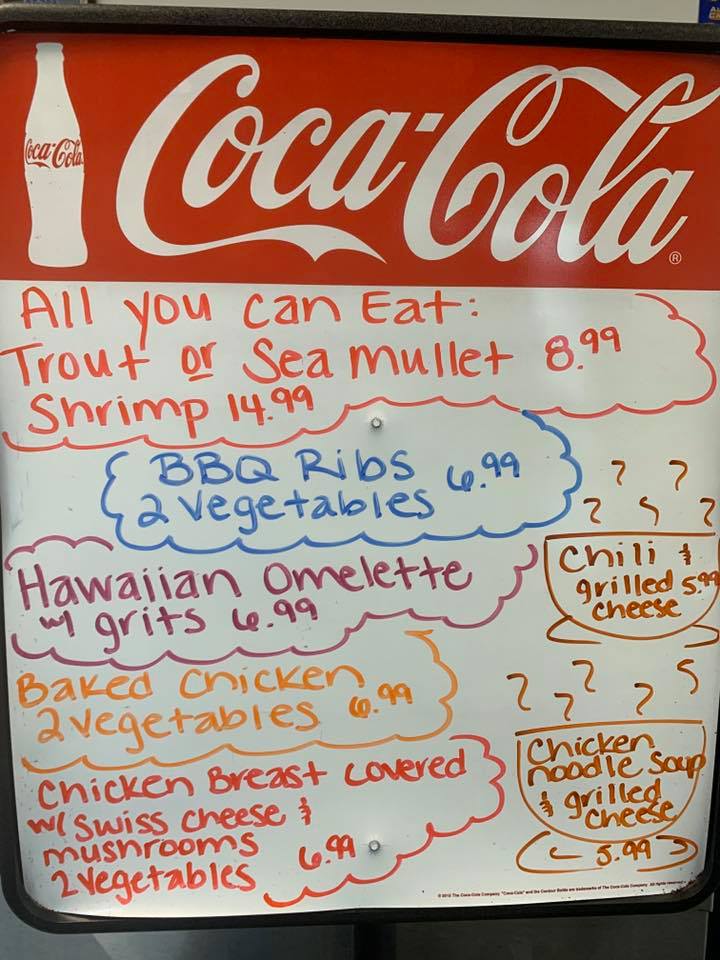 Coca-Cola
Coca-Cola®
All you can Eat:
Trout or Sea mullet 8.99
Shrimp 14.99
BBQ Ribs 6.99
2 Vegetables
Hawaiian Omelette
w/ grits 6.99
Chili &
grilled 5.99
cheese
Baked Chicken
2 vegetables 6.99
Chicken
noodle Soup
& grilled
cheese
5.99
Chicken Breast covered
w/ Swiss cheese &
mushrooms 6.99
2 Vegetables